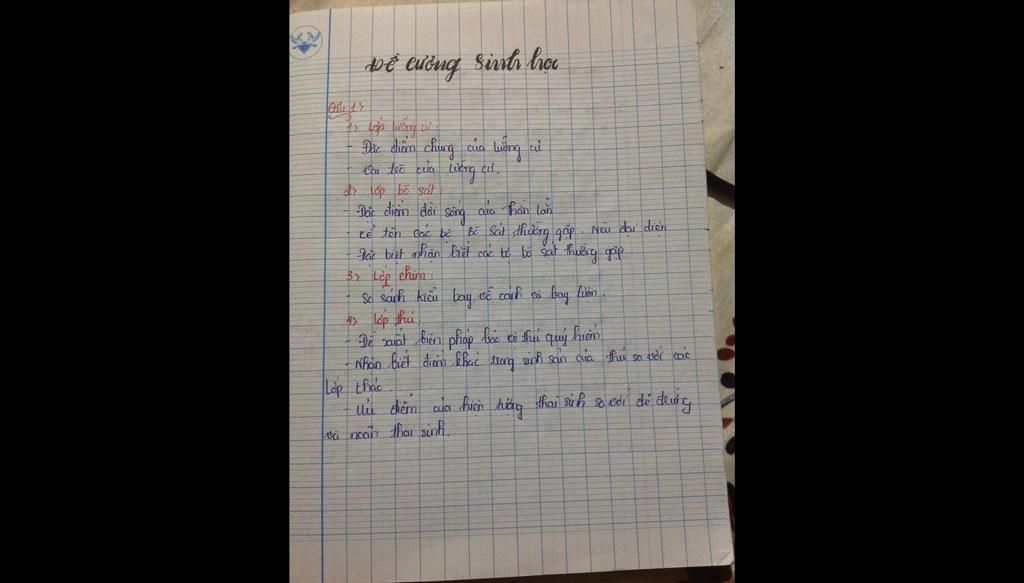 Đề cương sinh học
Câu 1>
1> Lớp lưỡng cư:
- Đặc điểm chung của lưỡng cư
- Vai trò của lưỡng cư.
2> Lớp bò sát:
- Đặc điểm đời sống của thằn lằn
- Kể tên các bộ bò sát thường gặp. Nêu đại diện
- Đặc biệt nhận biết các bộ bò sát thường gặp
3> Lớp chim:
- So sánh kiểu bay vỗ cánh và bay lượn.
4> Lớp thú:
- Đề xuất biện pháp bảo vệ thú quý hiếm
- Nhận biết điểm khác trong sinh sản của thú so với các
lớp khác
- Ưu điểm của hiện tượng thai sinh so với đẻ trứng
và noãn thai sinh.